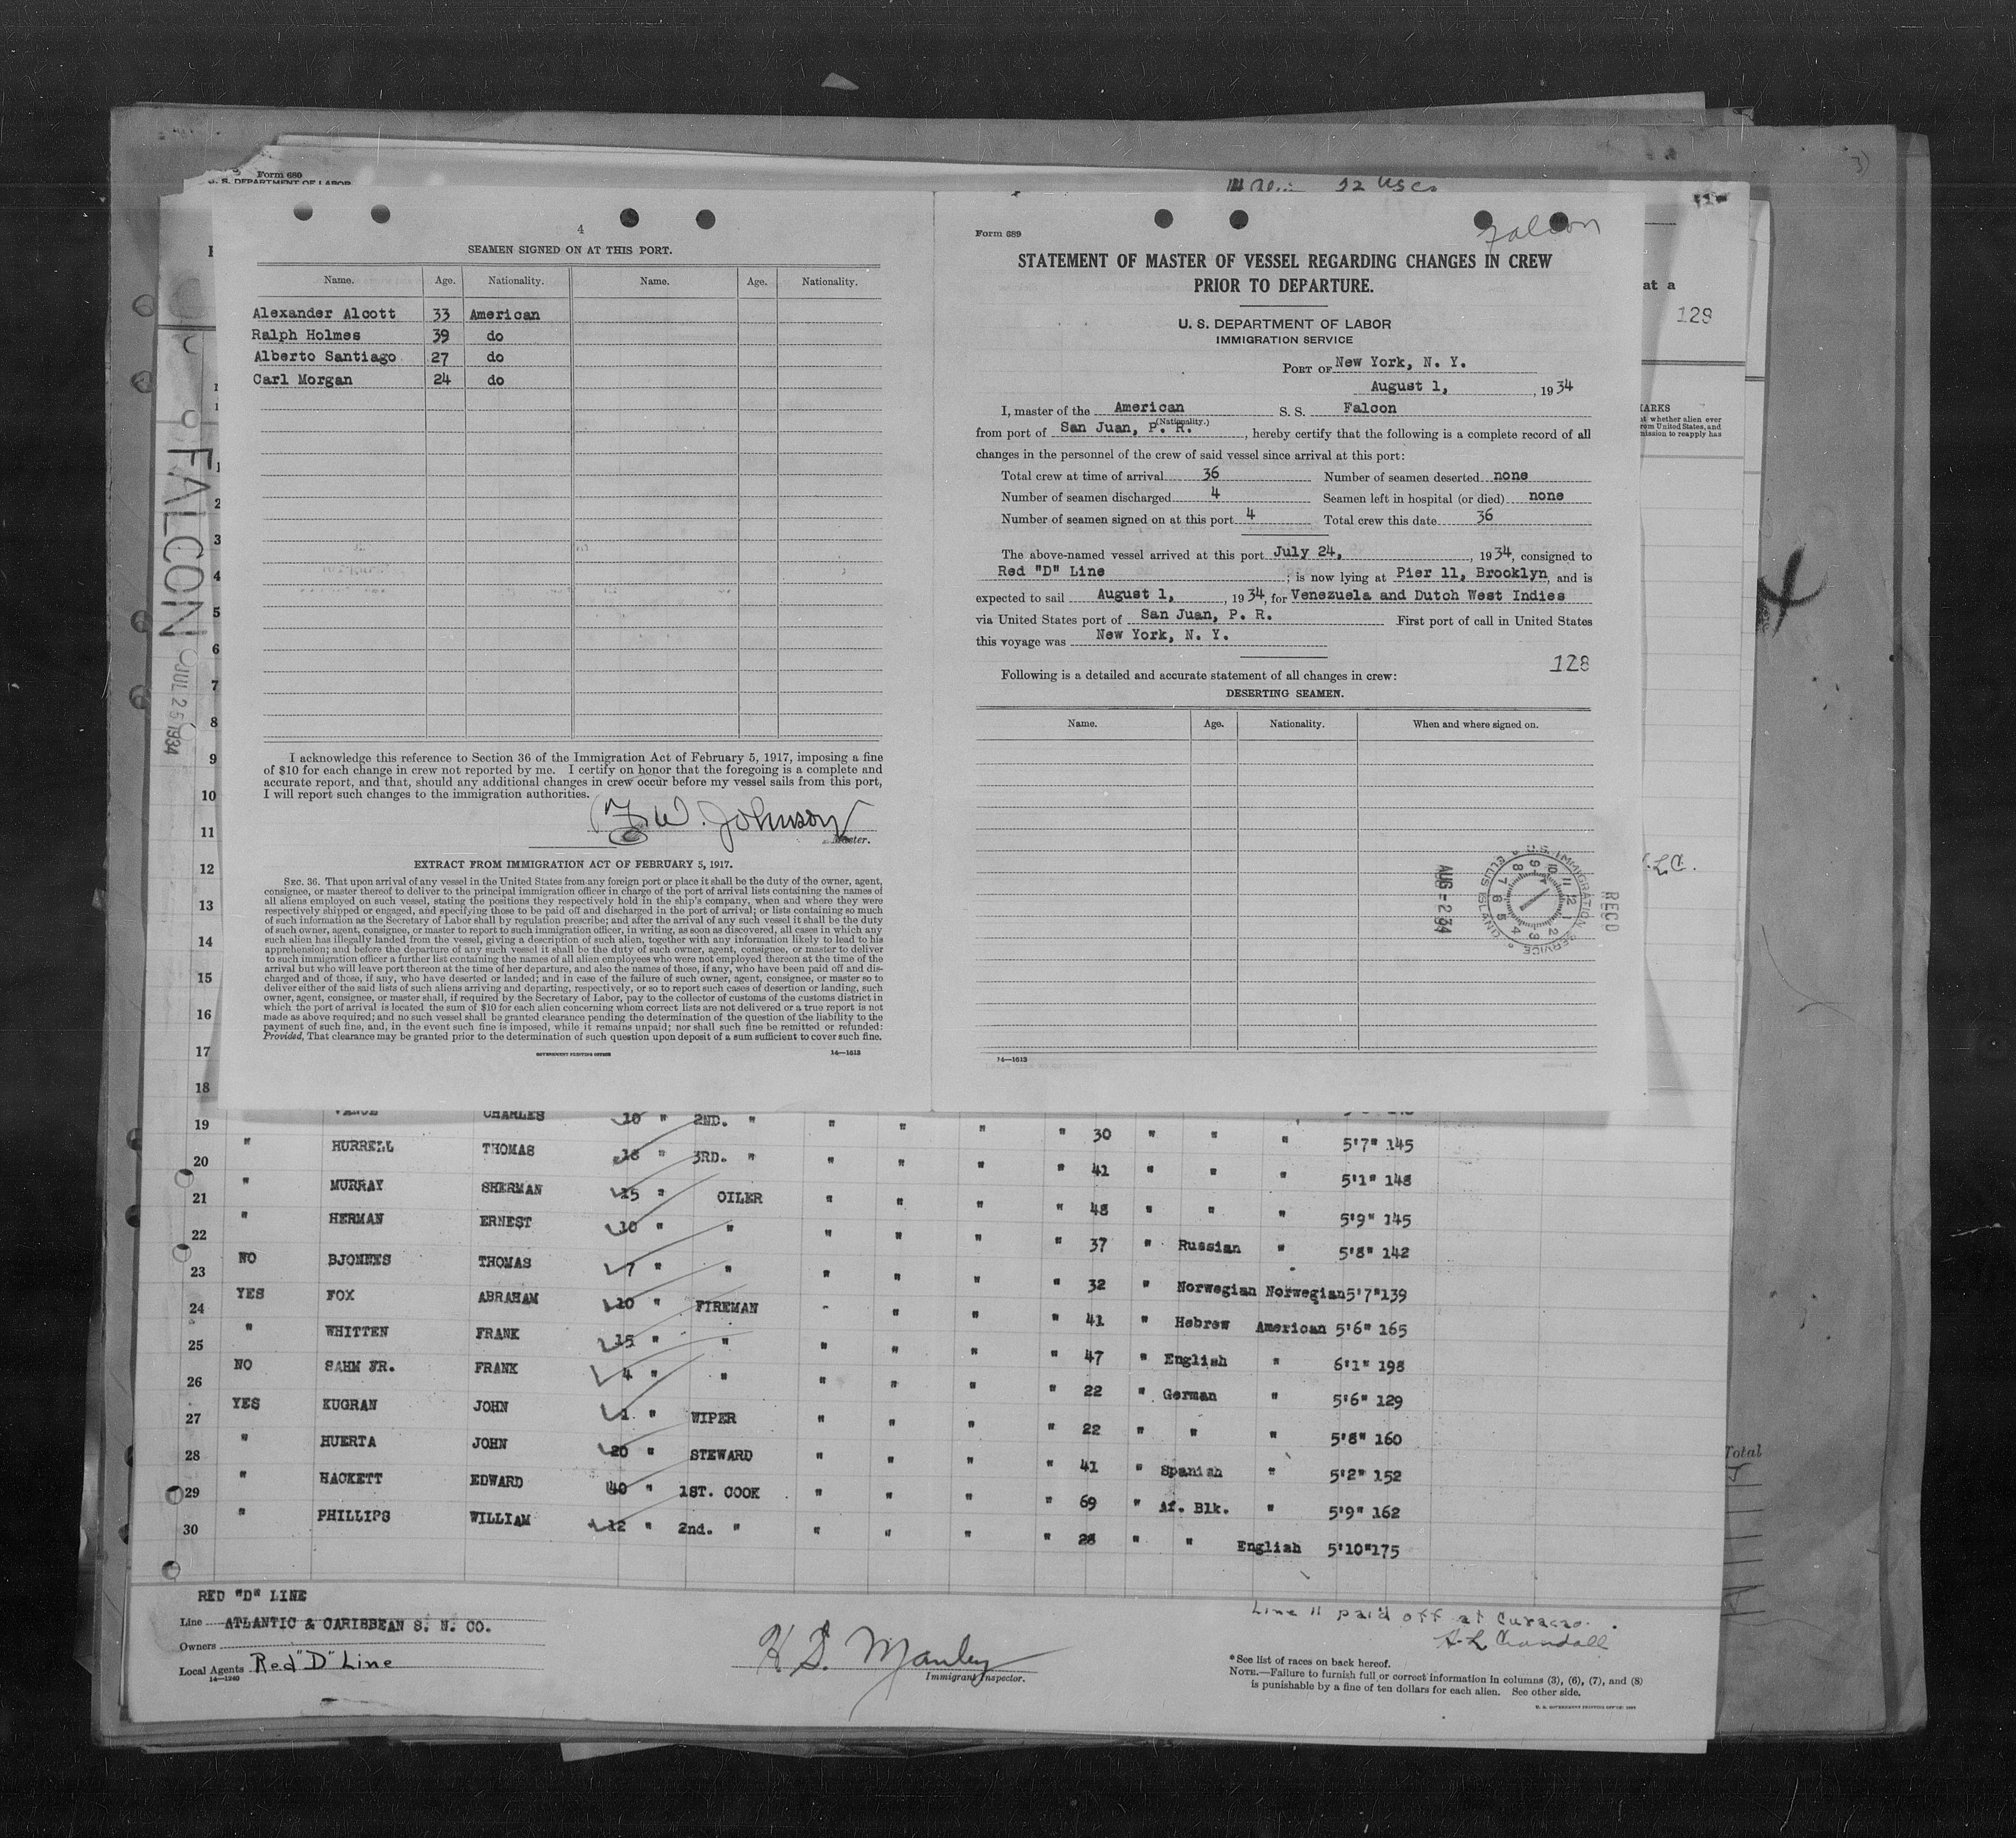 Form 689
U. S. DEPARTMENT OF LABOR
4
SEAMEN SIGNED ON AT THIS PORT.
Name. Age. Nationality. Name. Age. Nationality.
Alexander Alcott 33 American
Ralph Holmes 39 do
Alberto Santiago 27 do
Carl Morgan 24 do
I acknowledge this reference to Section 36 of the Immigration Act of February 5, 1917, imposing a fine
of $10 for each change in crew not reported by me. I certify on honor that the foregoing is a complete and
accurate report, and that, should any additional changes in crew occur before my vessel sails from this port,
I will report such changes to the immigration authorities.
W. Johnson
Master.
EXTRACT FROM IMMIGRATION ACT OF FEBRUARY 5, 1917.
SEC. 36. That upon arrival of any vessel in the United States from any foreign port or place it shall be the duty of the owner, agent,
consignee, or master thereof to deliver to the principal immigration officer in charge of the port of arrival lists containing the names of
all aliens employed on such vessel, stating the positions they respectively hold in the ship's company, when and where they were
respectively shipped or engaged, and specifying those to be paid off and discharged in the port of arrival; or lists containing so much
of such information as the Secretary of Labor shall by regulation prescribe; and after the arrival of any such vessel it shall be the duty
of such owner, agent, consignee, or master to report to such immigration officer, in writing, as soon as discovered, all cases in which any
such alien has illegally landed from the vessel, giving a description of such alien, together with any information likely to lead to his
apprehension; and before the departure of any such vessel it shall be the duty of such owner, agent, consignee, or master to deliver
to such immigration officer a further list containing the names of all alien employees who were not employed thereon at the time of the
arrival but who will leave port thereon at the time of her departure, and also the names of those, if any, who have been paid off and dis-
charged and of those, if any, who have deserted or landed; and in case of the failure of such owner, agent, consignee, or master so to
deliver either of the said lists of such aliens arriving and departing, respectively, or so to report such cases of desertion or landing, such
owner, agent, consignee, or master shall, if required by the Secretary of Labor, pay to the collector of customs of the customs district in
which the port of arrival is located the sum of $10 for each alien concerning whom correct lists are not delivered or a true report is not
made as above required; and no such vessel shall be granted clearance pending the determination of the question of the liability to the
payment of such fine, and, in the event such fine is imposed, while it remains unpaid; nor shall such fine be remitted or refunded:
Provided, That clearance may be granted prior to the determination of such question upon deposit of a sum sufficient to cover such fine.
GOVERNMENT PRINTING OFFICE 14—1613
Form 689
Falcon
STATEMENT OF MASTER OF VESSEL REGARDING CHANGES IN CREW
PRIOR TO DEPARTURE.
U. S. DEPARTMENT OF LABOR
IMMIGRATION SERVICE
PORT OF New York, N. Y.
August 1, , 1934
I, master of the American S. S. Falcon
(Nationality.)
from port of San Juan, P. R. , hereby certify that the following is a complete record of all
changes in the personnel of the crew of said vessel since arrival at this port:
Total crew at time of arrival 36 Number of seamen deserted none
Number of seamen discharged 4 Seamen left in hospital (or died) none
Number of seamen signed on at this port 4 Total crew this date 36
The above-named vessel arrived at this port July 24, , 1934, consigned to
Red "D" Line ; is now lying at Pier 11, Brooklyn, and is
expected to sail August 1, , 1934, for Venezuela and Dutch West Indies
via United States port of San Juan, P. R. First port of call in United States
this voyage was New York, N. Y.
128
Following is a detailed and accurate statement of all changes in crew:
DESERTING SEAMEN.
Name. Age. Nationality. When and where signed on.
RECD
AUG - 2 34
U.S. IMMIGRATION SERVICE
ELLIS ISLAND
14—1613
at a
128
FALCON
JUL 25 1934
2
3
4
5
6
7
8
9
10
11
12
13
14
15
16
17
18
CHARLES 10 " 2ND. "
19 " HURRELL THOMAS 18 " 3RD. " " " " " 30 " " " 5'7" 145
20 " MURRAY SHERMAN 15 " OILER " " " " 41 " " " 5'1" 148
21 " HERMAN ERNEST 10 " " " " " " 48 " " " 5'9" 145
22 NO BJONNES THOMAS 7 " " " " " " 37 " Russian " 5'8" 142
23 YES FOX ABRAHAM 10 " FIREMAN " " " " 32 " Norwegian Norwegian 5'7" 139
24 " WHITTEN FRANK 15 " " - " " " 41 " Hebrew American 5'6" 165
25 NO SAHM JR. FRANK 4 " " " " " " 47 " English " 6'1" 198
26 YES KUGRAN JOHN 1 " WIPER " " " " 22 " German " 5'6" 129
27 " HUERTA JOHN 20 " STEWARD " " " " 22 " " " 5'8" 160
28 " HACKETT EDWARD 40 " 1ST. COOK " " " " 41 " Spanish " 5'2" 152
29 " PHILLIPS WILLIAM 12 " 2nd. " " " " " 69 " Af. Blk. " 5'9" 162
30 " " " " 28 " " English 5'10" 175
RED "D" LINE
Line ATLANTIC & CARIBBEAN S. N. CO.
Owners
Local Agents Red "D" Line
14—1240
Manley
Immigrant Inspector.
Line 11 paid off at Curacao.
Crandall
*See list of races on back hereof.
NOTE.—Failure to furnish full or correct information in columns (3), (6), (7), and (8)
is punishable by a fine of ten dollars for each alien. See other side.
Total